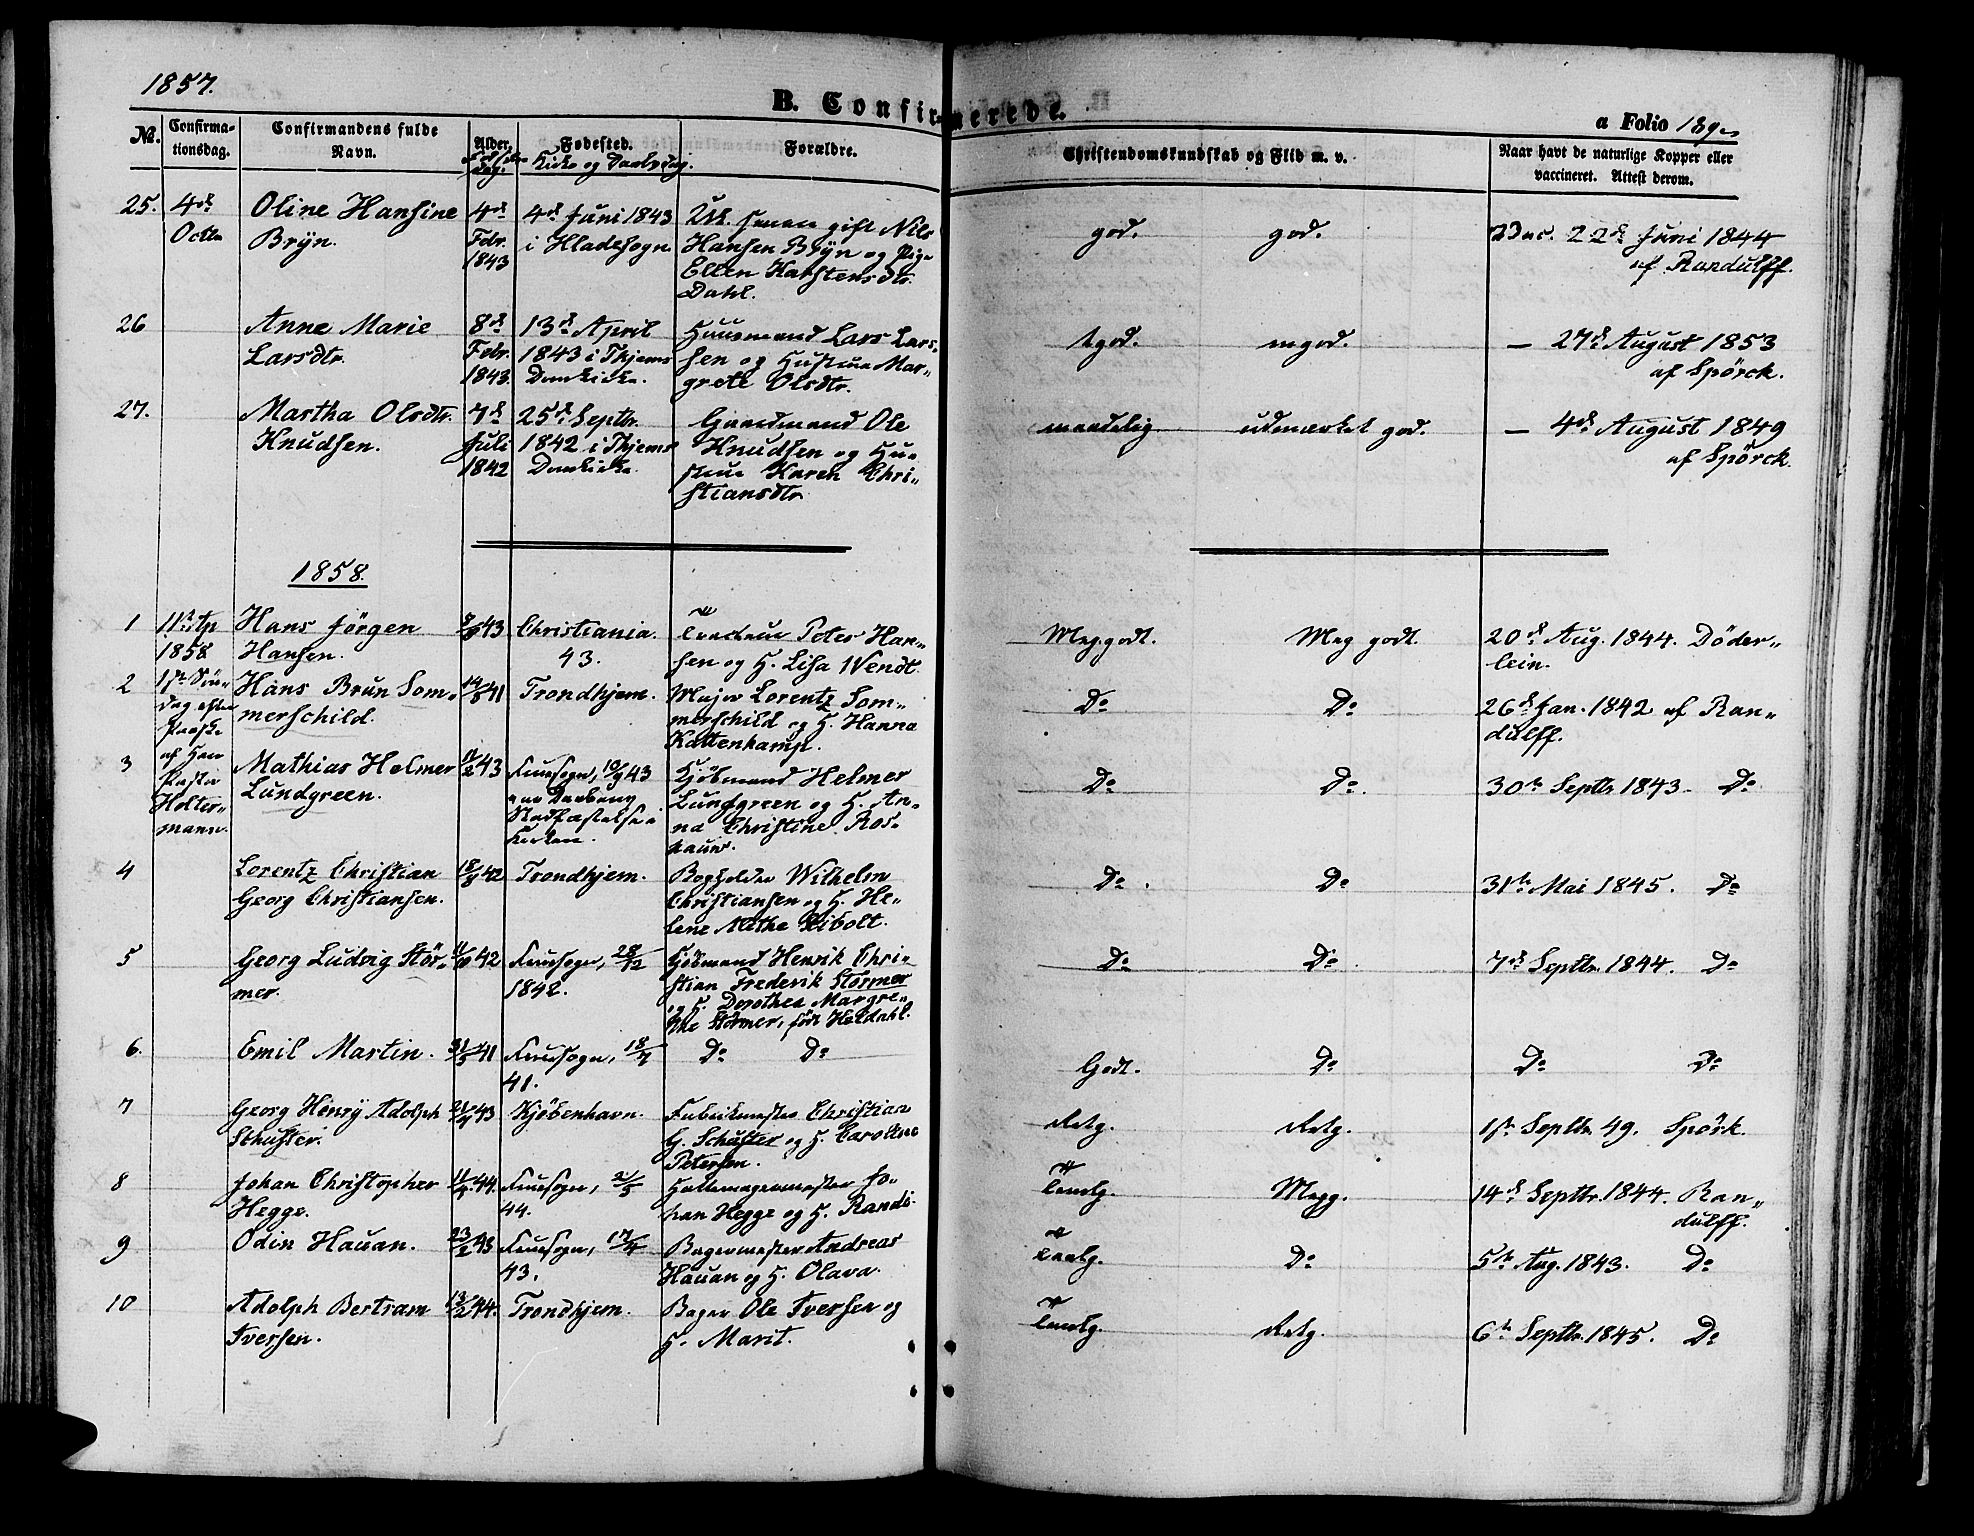 1857.
B. Confirmerede.
a Folio 189
No. Confirma-tionsdag. Confirmandens fulde Navn. Alder. Fødested. Forældre. Christendomskundskab og Flid m. v. Naar havt de naturlige Kopper eller vaccineret. Attest derom.
Kirke og Daabsdag.
25. 4de Octbr Oline Hansine Brÿn. 4de Febr. 1843 4de Juni 1843 i Hladesogn gift Nils Hansen Brÿn og Pige Ellen Karstensdtr. Dahl. god. god. Vac. 22de Juni 1844 af Randulff.
26 Anne Marie Larsdtr. 8de Febr. 1843. 13de April 1843 i Thjems Domkirke. Huusmand Lars Larsen og Hustrue Margrete Olsdtr. tgod. mgod. — 27de August 1853 af Spörck.
27. Martha Olsdtr. Knudsen. 7de Juli 1842 25de Septbr. 1842 i Thjems Domkirke. Gaardmand Ole Knudsen og Hustrue Karen Christiansdtr. maadelig udmærket god. — 4de August 1849 af Spörck.
1858.
1 11te Ap 1858 Hans Jörgen Hansen. 43 Christiania. 43. Peter Hansen og H. Lisa Wendt. Meg.godt. Meg godt. 20de Aug. 1844. Döderlein.
2 1ste Søndag efter Paaske af Herr Pastor Holtermann. Hans Brun Sommerschild. 41 Trondhjem. Major Lorentz Sommerschild og H. Hanna Kattenkamp. Do Do 26de Jan. 1842 af Randulff.
3 Mathias Helmer Lundgreen. 43 Fruesogn, 10/9 43 Stadfæstelse i Kirken. Kjöbmand Helmer Lundgreen og H. Anna Christine Do Do. 30te Septbr 1843. Do
4 Lorentz Christian Georg Christiansen. 18/8 42 Trondhjem. Bogholder Wilhelm Christiansen og H. Helene Mathe Sibolt. Do. Do 31te Mai 1845. Do
5 Georg Ludvig Störmer. 42 Fruesogn, 28/12 1842. Kjöbmand Henrik Christian Frederik Störmer og H. Dorothea Margrethe Störmer, födt Heldahl. Do Do. 7de Septbr. 1844. Do
6. Emil Martin. 31/5 41 Fruesogn, 18/7 41. Do Do Godt. Do Do Do
7 Georg Henrÿ Adolph Schuster. 43 Kjöbenhavn. Fabrikmester Christian G. Schuster og H. Caroline Petersen. Retg. Retg. 1ste Septbr. 49. Spörk.
8 Johan Christopher Hegge. 44. Fruesogn, 2/5 44. Hattemagermester Johan Hegge og H. Randi. Megg. 14de Septbr. 1844. Randulff.
9 Odin Hauan. 23/2 43 Fruesogn, 17/4 43. Bagermester Andreas Hauan og H. Olava. Do 5te Aug. 1843. Do
10 Adolph Bertram Iversen. 13/2 44. Trondhjem. Bager Ole Iversen og H. Marit. Retg. 6te Septbr. 1845. Do